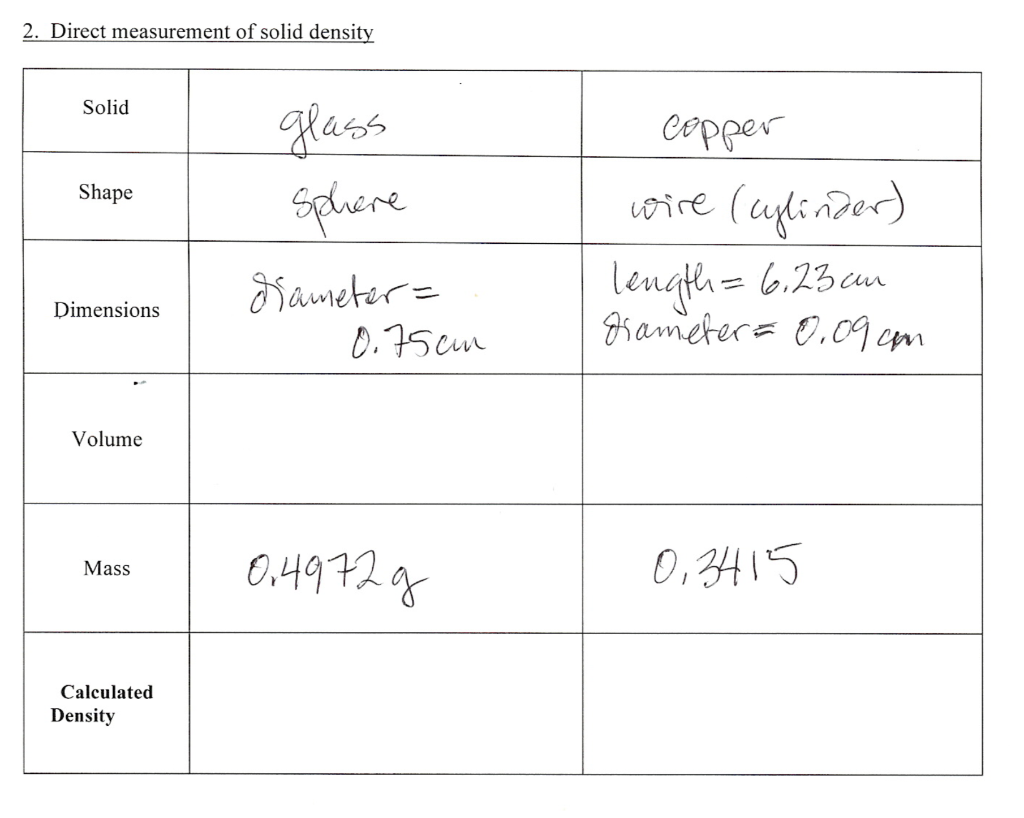 2. Direct measurement of solid density
Solid
glass
copper
Shape
sphere
wire (cylinder)
Dimensions
diameter =
0.75 cm
length = 6.23 cm
diameter = 0.09 cm
Volume
Mass
0.4972 g
0.3415
Calculated
Density